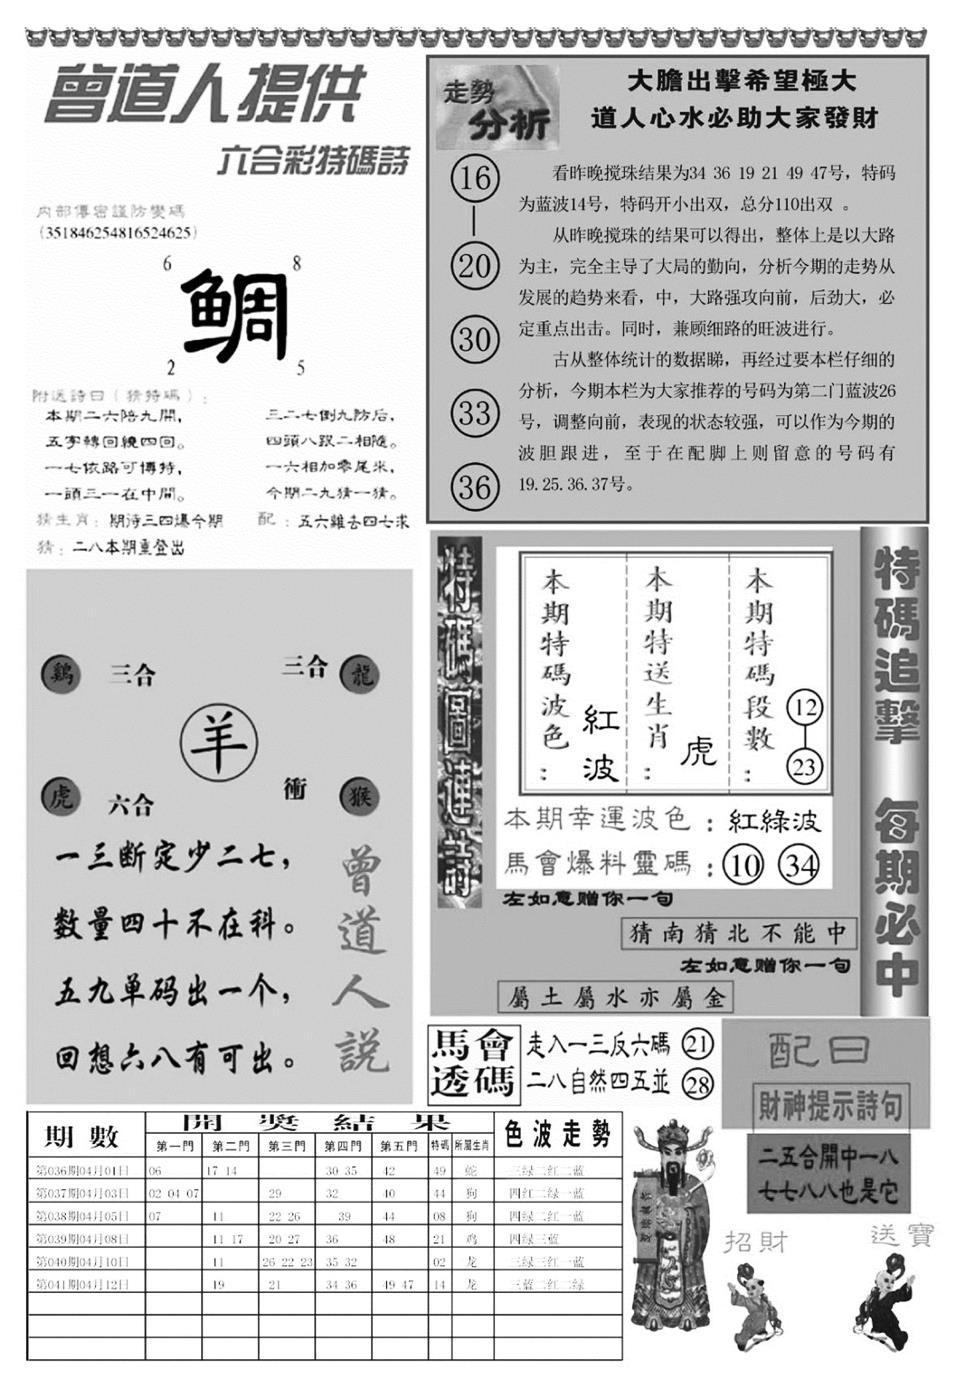 曾道人提供
六合彩特碼詩
内部傳密謹防變碼
（351846254816524625）
6 8
鲷
2 5
附送詩曰（猜特碼）：
本期二六陪九開，
五字轉回繞四回。
一七依路可博持，
一頭三一在中開。
三二七倒九防后，
四頭八跟二相隨。
一六相加零尾米，
今期二九猜一猜。
猜生肖：期待三四爆今期
配：五六雞去四七求
猜：二八本期重登出
走勢
分析
大膽出擊希望極大
道人心水必助大家發財
16
20
30
33
36
看昨晚搅珠结果为34 36 19 21 49 47号，特码
为蓝波14号，特码开小出双，总分110出双 。
从昨晚搅珠的结果可以得出，整体上是以大路
为主，完全主导了大局的勤向，分析今期的走势从
发展的趋势来看，中，大路强攻向前，后劲大，必
定重点出击。同时，兼顾细路的旺波进行。
古从整体统计的数据睇，再经过要本栏仔细的
分析，今期本栏为大家推荐的号码为第二门蓝波26
号，调整向前，表现的状态较强，可以作为今期的
波胆跟进，至于在配脚上则留意的号码有
19.25.36.37号。
鷄 三合
三合 龍
羊
虎 六合
衝 猴
一三断定少二七，
数量四十不在科。
五九单码出一个，
回想六八有可出。
曾道人説
本期特碼波色：
紅波
本期特送生肖：
虎
本期特碼段數：
12
23
本期幸運波色：紅綠波
馬會爆料靈碼：10 34
左如意赠你一句
猜南猜北不能中
左如意赠你一句
屬土屬水亦屬金
特碼追擊 每期必中
馬會透碼
走入一三反六碼 21
二八自然四五並 28
配曰
財神提示詩句
二五合開中一八
七七八八也是它
招財
送寶
期數 開獎結果 色波走勢
第一門 第二門 第三門 第四門 第五門 特碼 所屬生肖
第036期04月01日 06 17 14 30 35 42 49 蛇 三绿二红二蓝
第037期04月03日 02 04 07 29 32 40 44 狗 四红二绿一蓝
第038期04月05日 07 11 22 26 39 44 08 狗 四绿二红一蓝
第039期04月08日 11 17 20 27 36 48 21 鸡 四绿三蓝
第040期04月10日 11 26 22 23 35 32 02 龙 三绿三红一蓝
第041期04月12日 19 21 34 36 49 47 14 龙 三蓝二红二绿